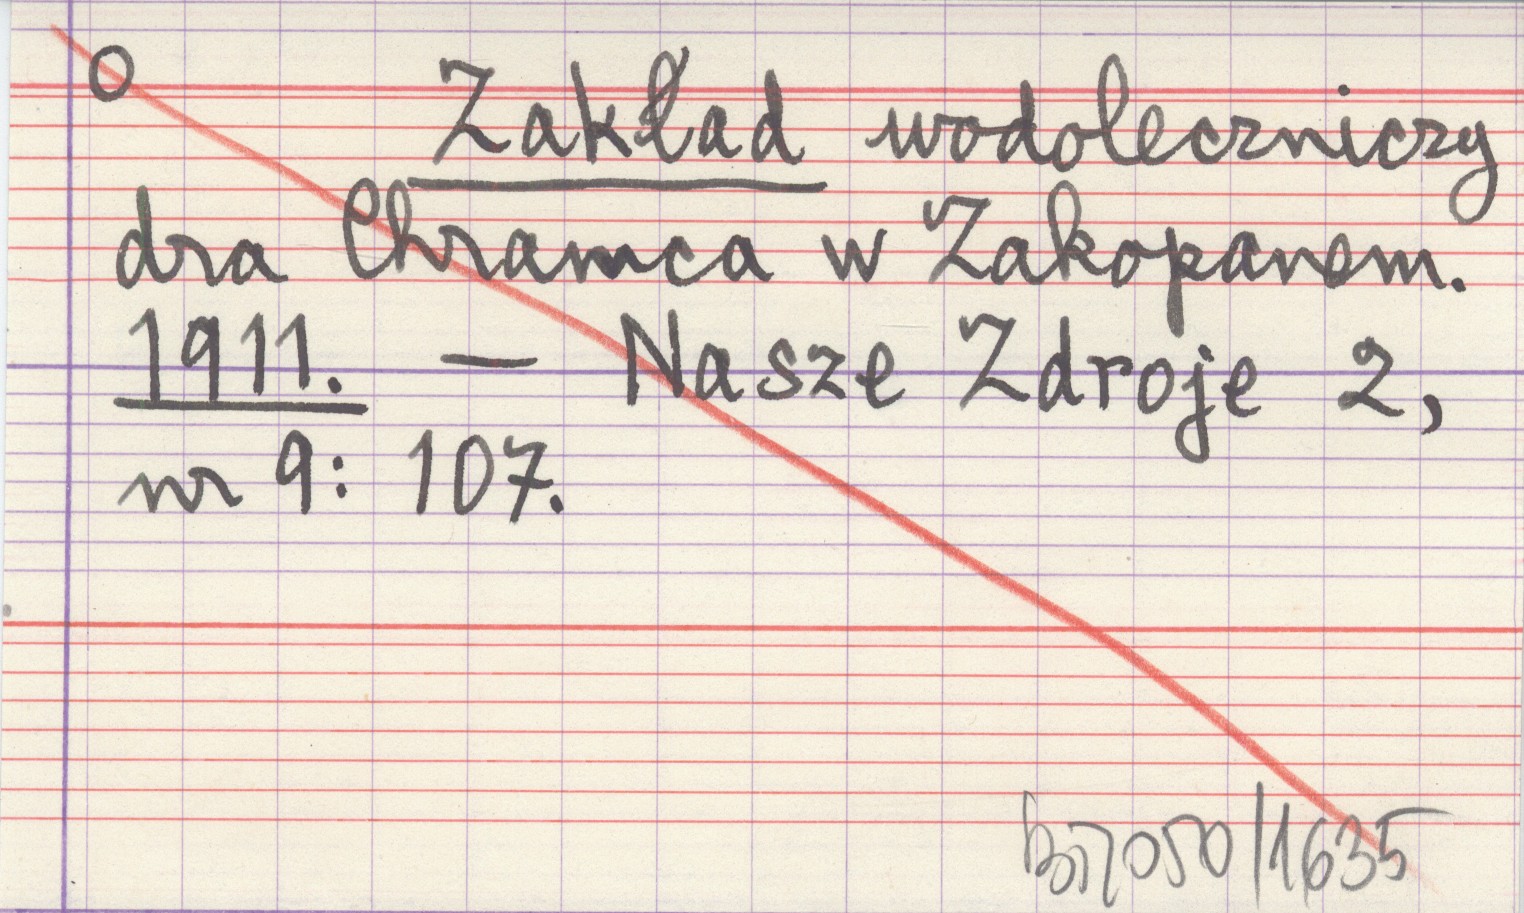 O Zakład wodoleczniczy
dra Chramca w Zakopanem.
1911. — Nasze Zdroje 2,
nr 9: 107.
/1635